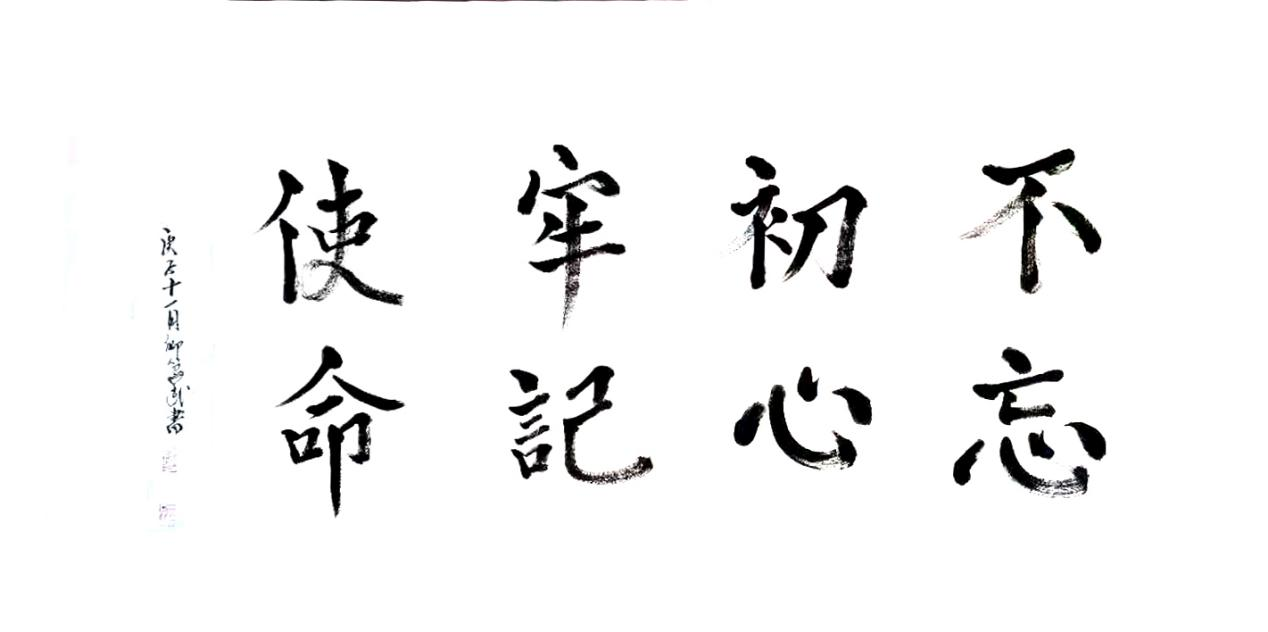 不忘
初心
牢記
使命
庚子十一月
書